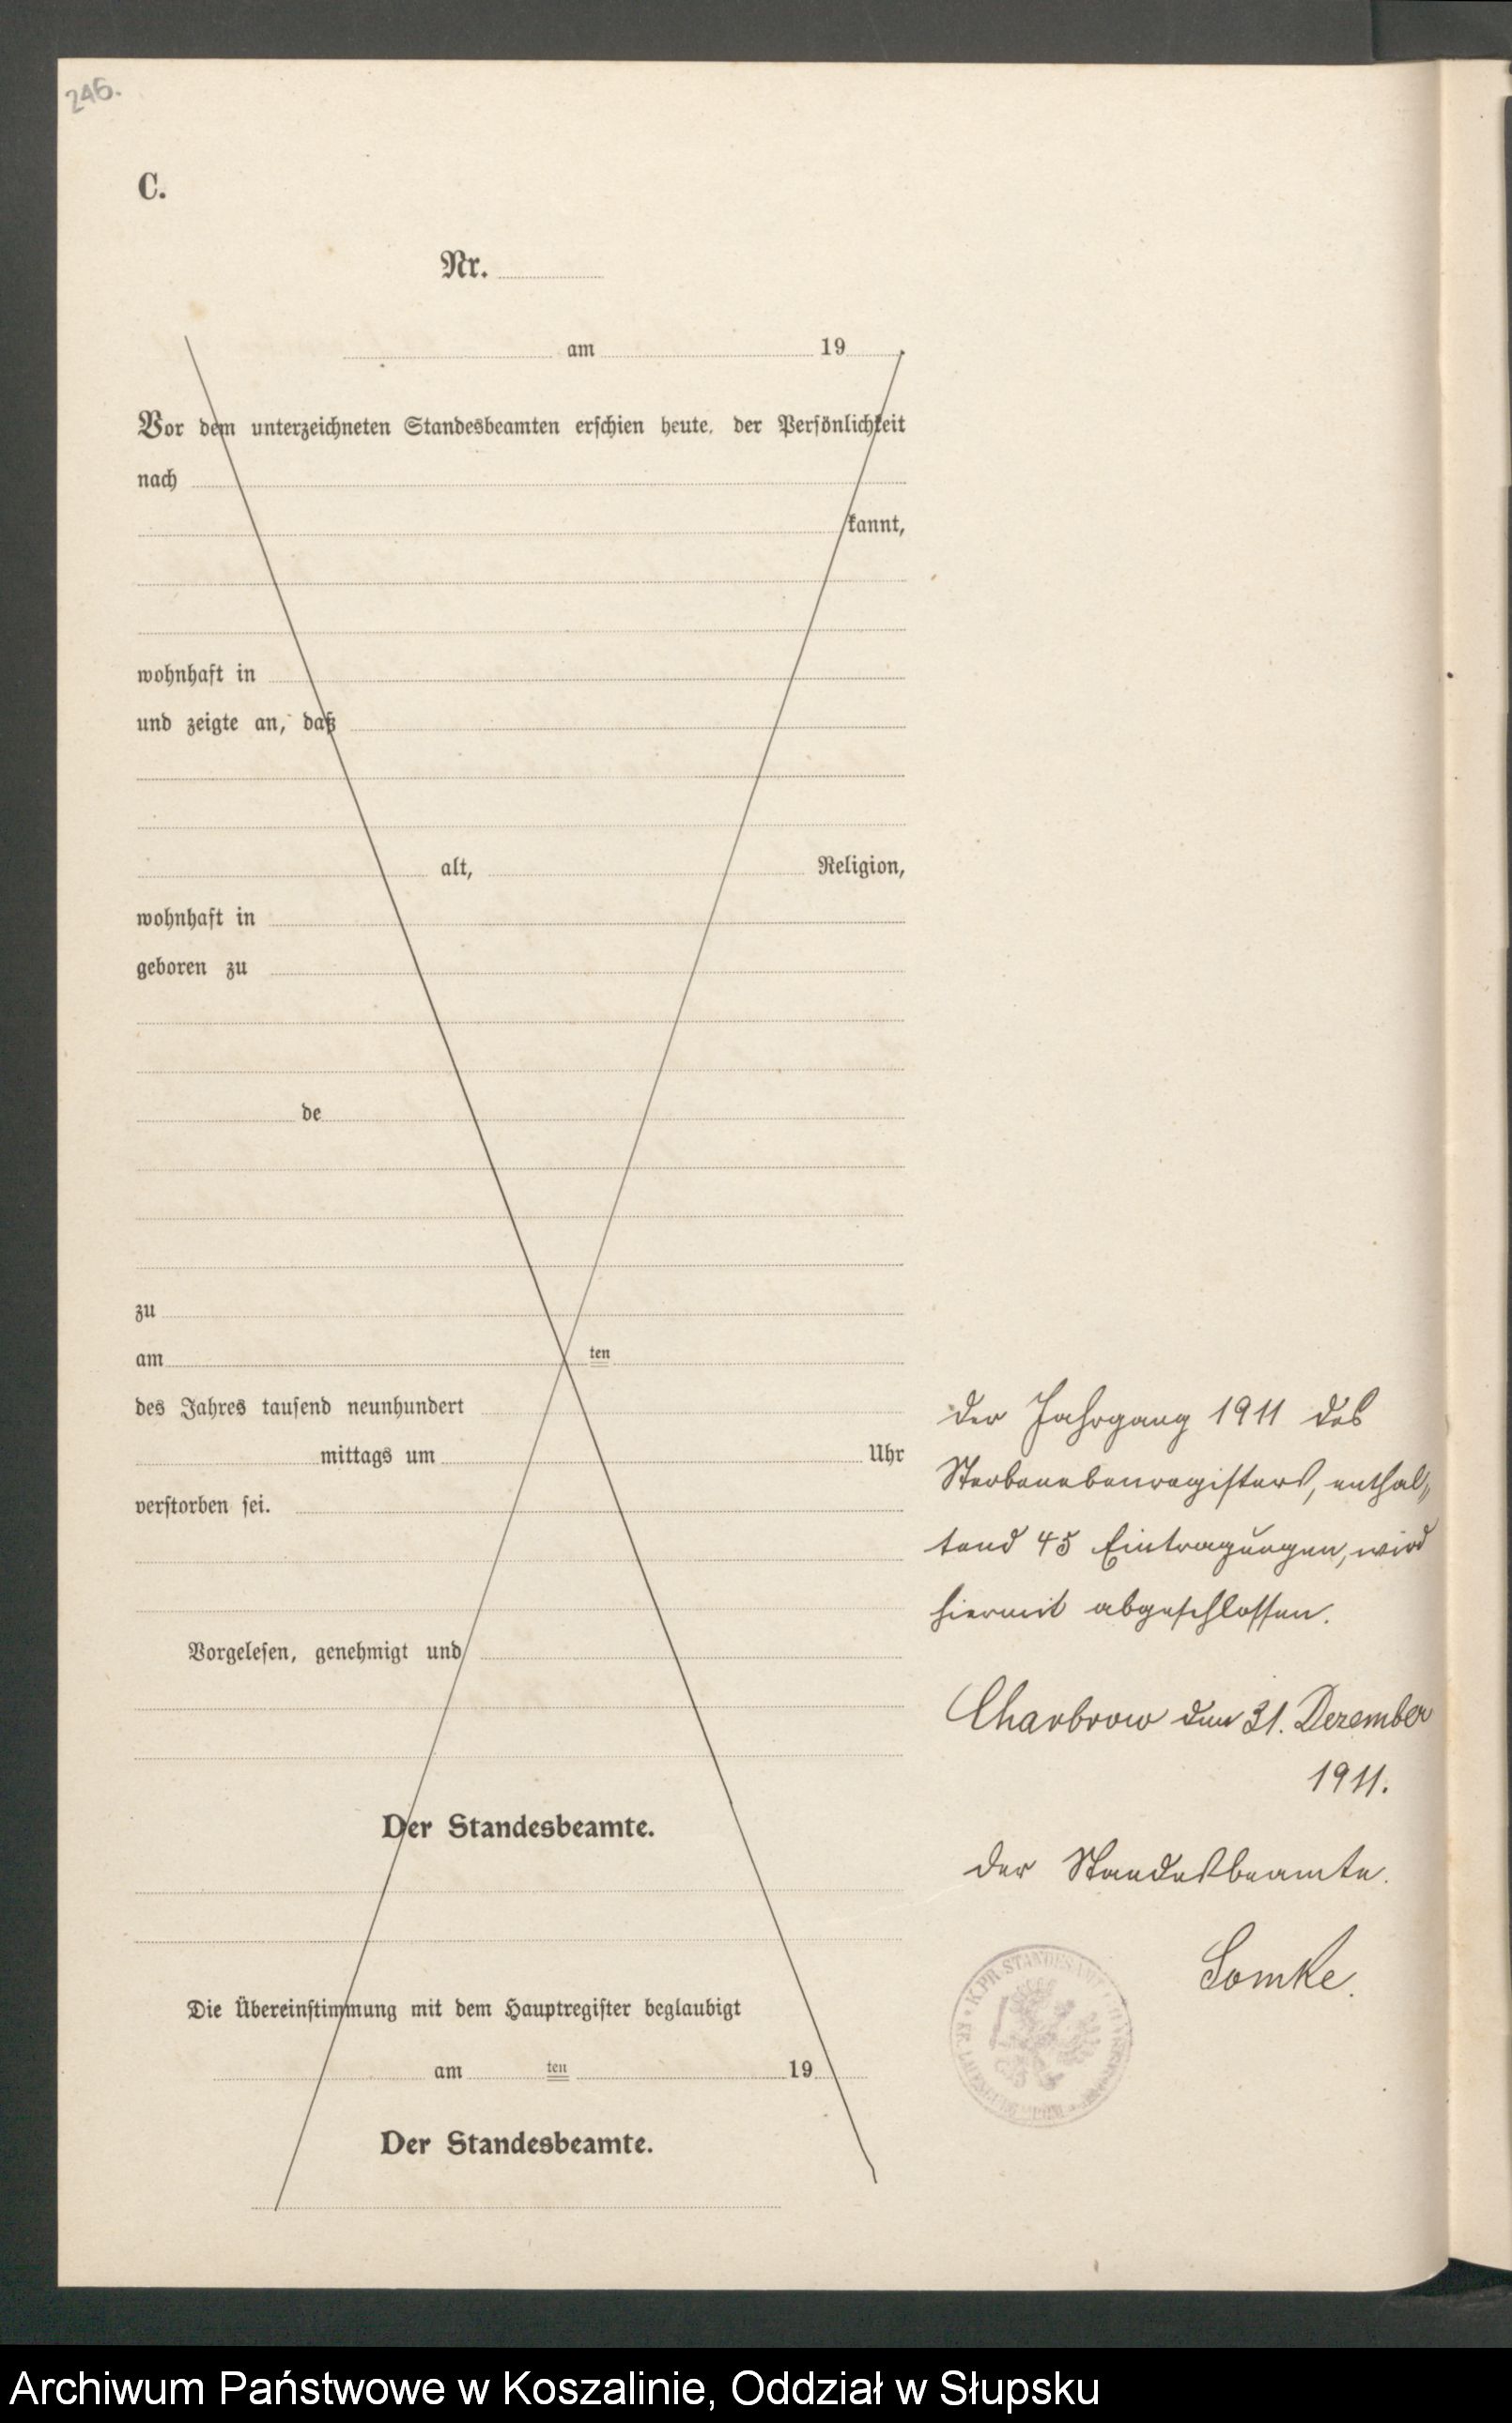 246.
C.
Nr.
am 19
Vor dem unterzeichneten Standesbeamten erschien heute, der Persönlichkeit
nach
kannt,
wohnhaft in
und zeigte an, daß
alt, Religion,
wohnhaft in
geboren zu
de
zu
am ten
des Jahres tausend neunhundert
mittags um Uhr
verstorben sei.
Vorgelesen, genehmigt und
Der Standesbeamte.
Die Übereinstimmung mit dem Hauptregister beglaubigt
am ten 19
Der Standesbeamte.
Der Jahrgang 1911 des
Sterbenebenregisters, enthal„
tend 45 Eintragungen, wird
hiermit abgeschlossen.
Charbrow den 31. Dezember
1911.
Der Standesbeamte.
K. PR. STANDESAMT
Archiwum Państwowe w Koszalinie, Oddział w Słupsku